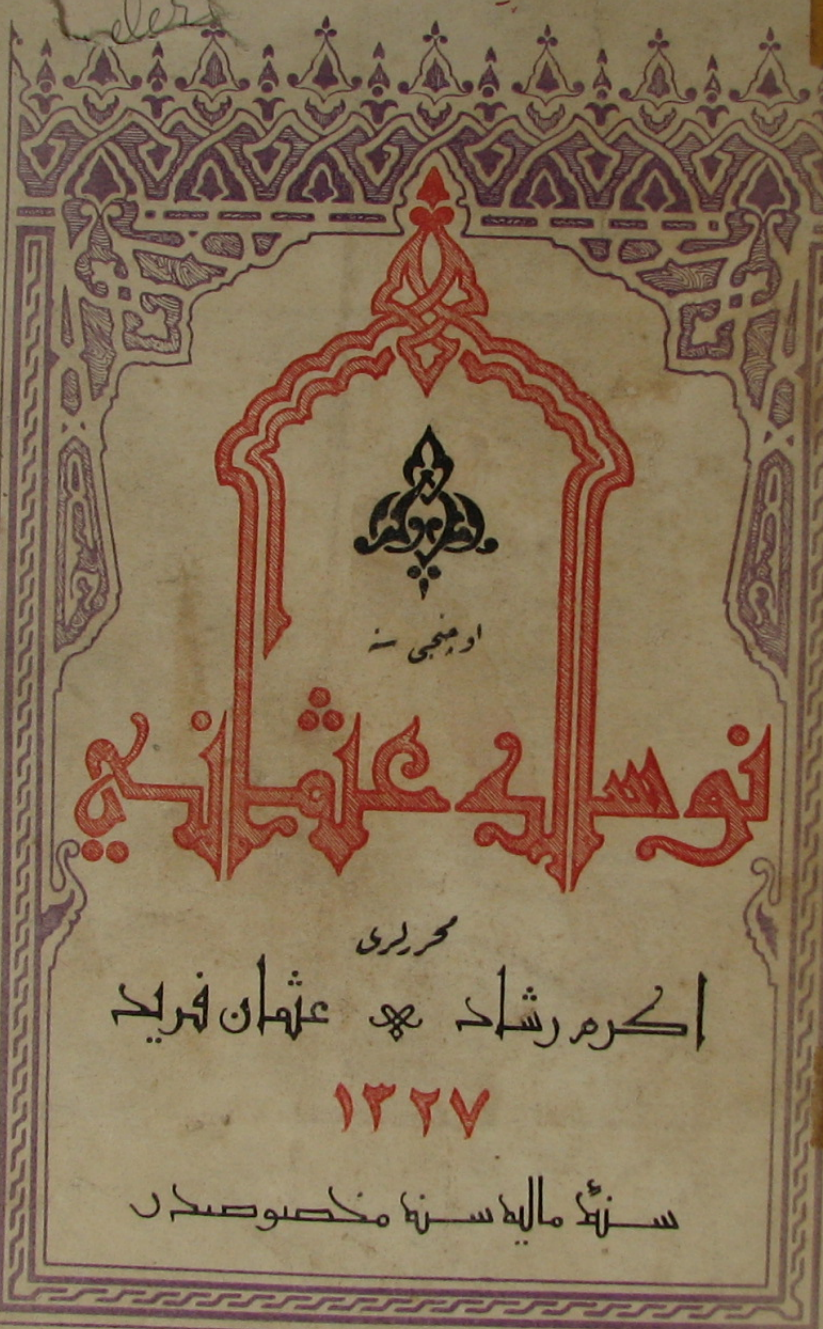 اوچنجی سنه
نوسال عثماني
محررلری
اكرم رشاد عثمان فريد
١٣٢٧
سنۀ ماليه سنه مخصوصدر